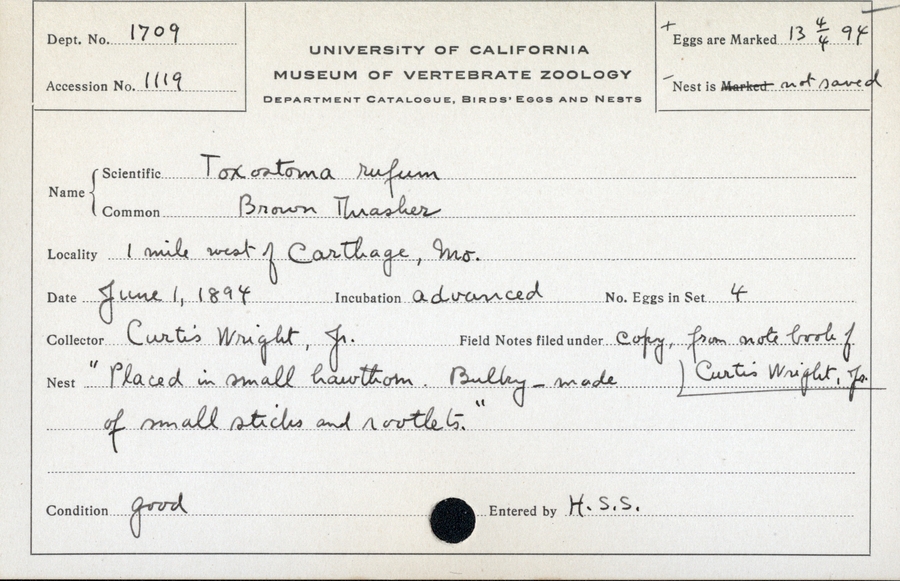 Dept. No. 1709
Accession No. 1119
UNIVERSITY OF CALIFORNIA
MUSEUM OF VERTEBRATE ZOOLOGY
DEPARTMENT CATALOGUE, BIRDS' EGGS AND NESTS
+ Eggs are Marked 13 4/4 94
- Nest is Marked not saved
Name { Scientific Toxostoma rufum
Common Brown Thrasher
Locality 1 mile west of Carthage, Mo.
Date June 1, 1894 Incubation advanced No. Eggs in Set 4
Collector Curtis Wright, Jr. Field Notes filed under copy, from note book of
Curtis Wright, Jr.
Nest "Placed in small hawthorn. Bulky - made
of small sticks and rootlets."
Condition good Entered by H.S.S.